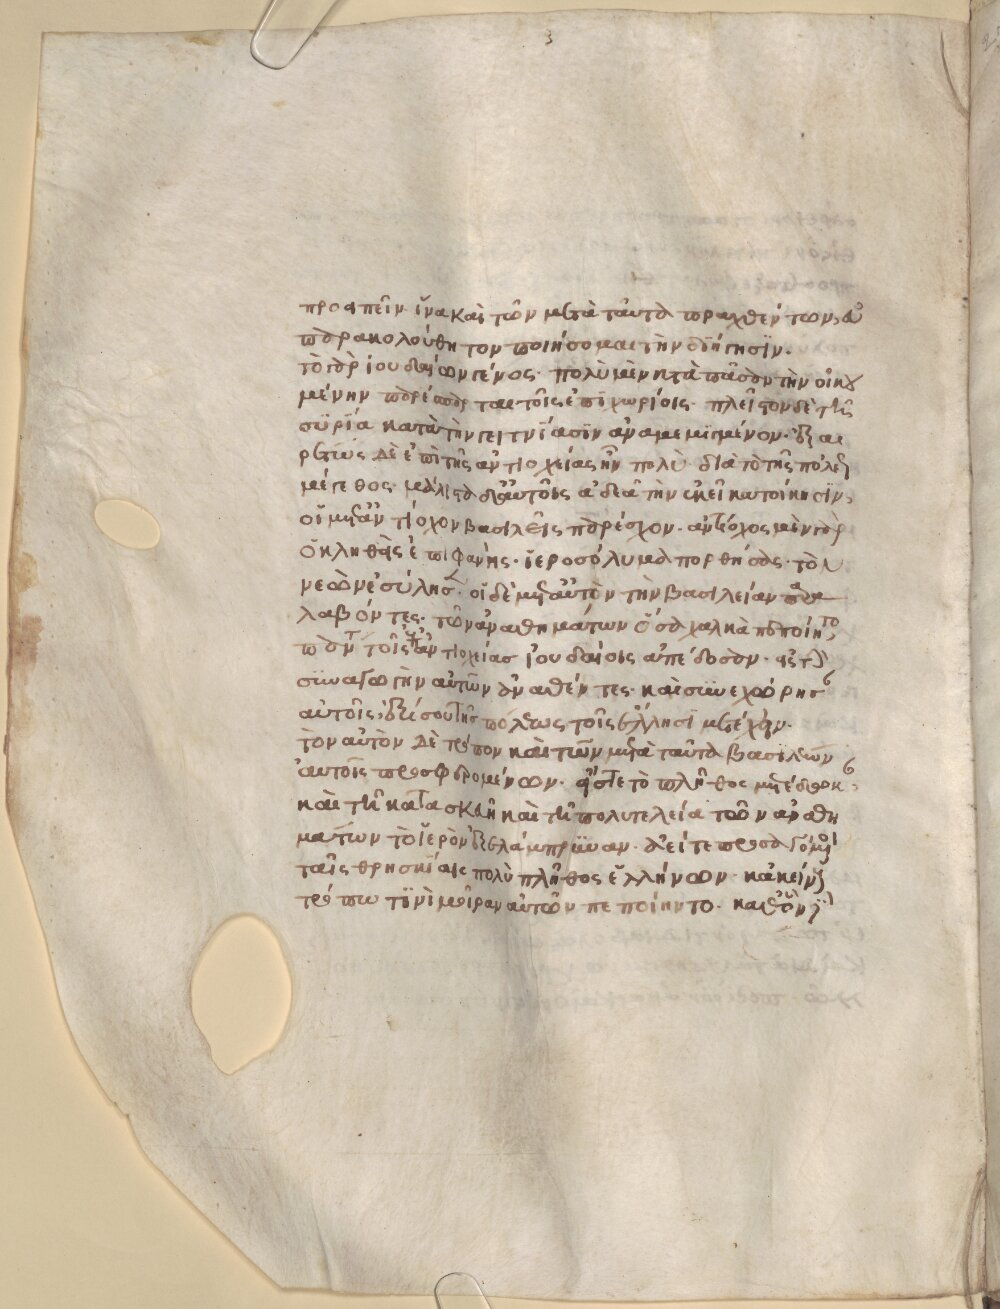 προειπεῖν ἵνα καὶ τῶν μετὰ ταῦτα πραχθέντων, εὐ
παρακολούθητον ποιήσομαι τὴν διήγησϊν.
τὸ γὰρ ἰουδαίων γένος· πολὺ μὲν κατὰ πᾶσαν τὴν οἰκου
μένην παρέσπαρται τοῖς ἐπιχωρίοις· πλεῖστον δὲ τῆ
συρία κατὰ τὴν γειτνίασϊν ἀναμεμιγμένον· ἐξαι
ρέτως δὲ ἐπὶ τῆς ἀντιοχείας ἦν πολὺ· διὰ τὸ τῆς πόλεως
μέγεθος· μάλιστα δ' αὐτοῖς ἀδεᾶ τὴν ἐκεῖ κατοίκησϊν,
οἱ μετ' ἀντίοχον βασιλεῖς παρέσχον· ἀντίοχος μὲν γὰρ
ὁ κληθεὶς ἐπιφανὴς· ἱεροσόλυμα πορθήσας· τὸν
νεὼν ἐσύλησεν· οἱ δὲ μετ' αὐτὸν τὴν βασιλείαν παρα
λαβόντες· τῶν ἀναθημάτων ὅσα χαλκᾶ πεποίητο
πάντα τοῖς ἐπ' ἀντιοχείασ ἰουδαίοις ἀπέδοσαν· εἰς τὴν
συναγωγὴν αὐτῶν ἀναθέντες· καὶ συνεχώρησαν
αὐτοῖς, ἐξίσου τῆς πόλεως τοῖς ἕλλησϊ μετέχειν·
τὸν αὐτὸν δὲ τρόπον καὶ τῶν μετὰ ταῦτα βασιλέων
αὐτοῖς προσφερομένων· εἴς τε τὸ πλῆθος ἐπέδωκαν
καὶ τῆ κατασκευῆ καὶ τῆ πολυτελεία τῶν ἀναθη
μάτων τὸ ἱερὸν ἐξελάμπρυναν· ἀεί τε προσαγόμενοι
ταῖς θρησκείαις πολὺ πλῆθος ἑλλήνων· κακείνους
τρόπω τινὶ μοῖραν αὐτῶν πεποίηντο· καθ' ὃν